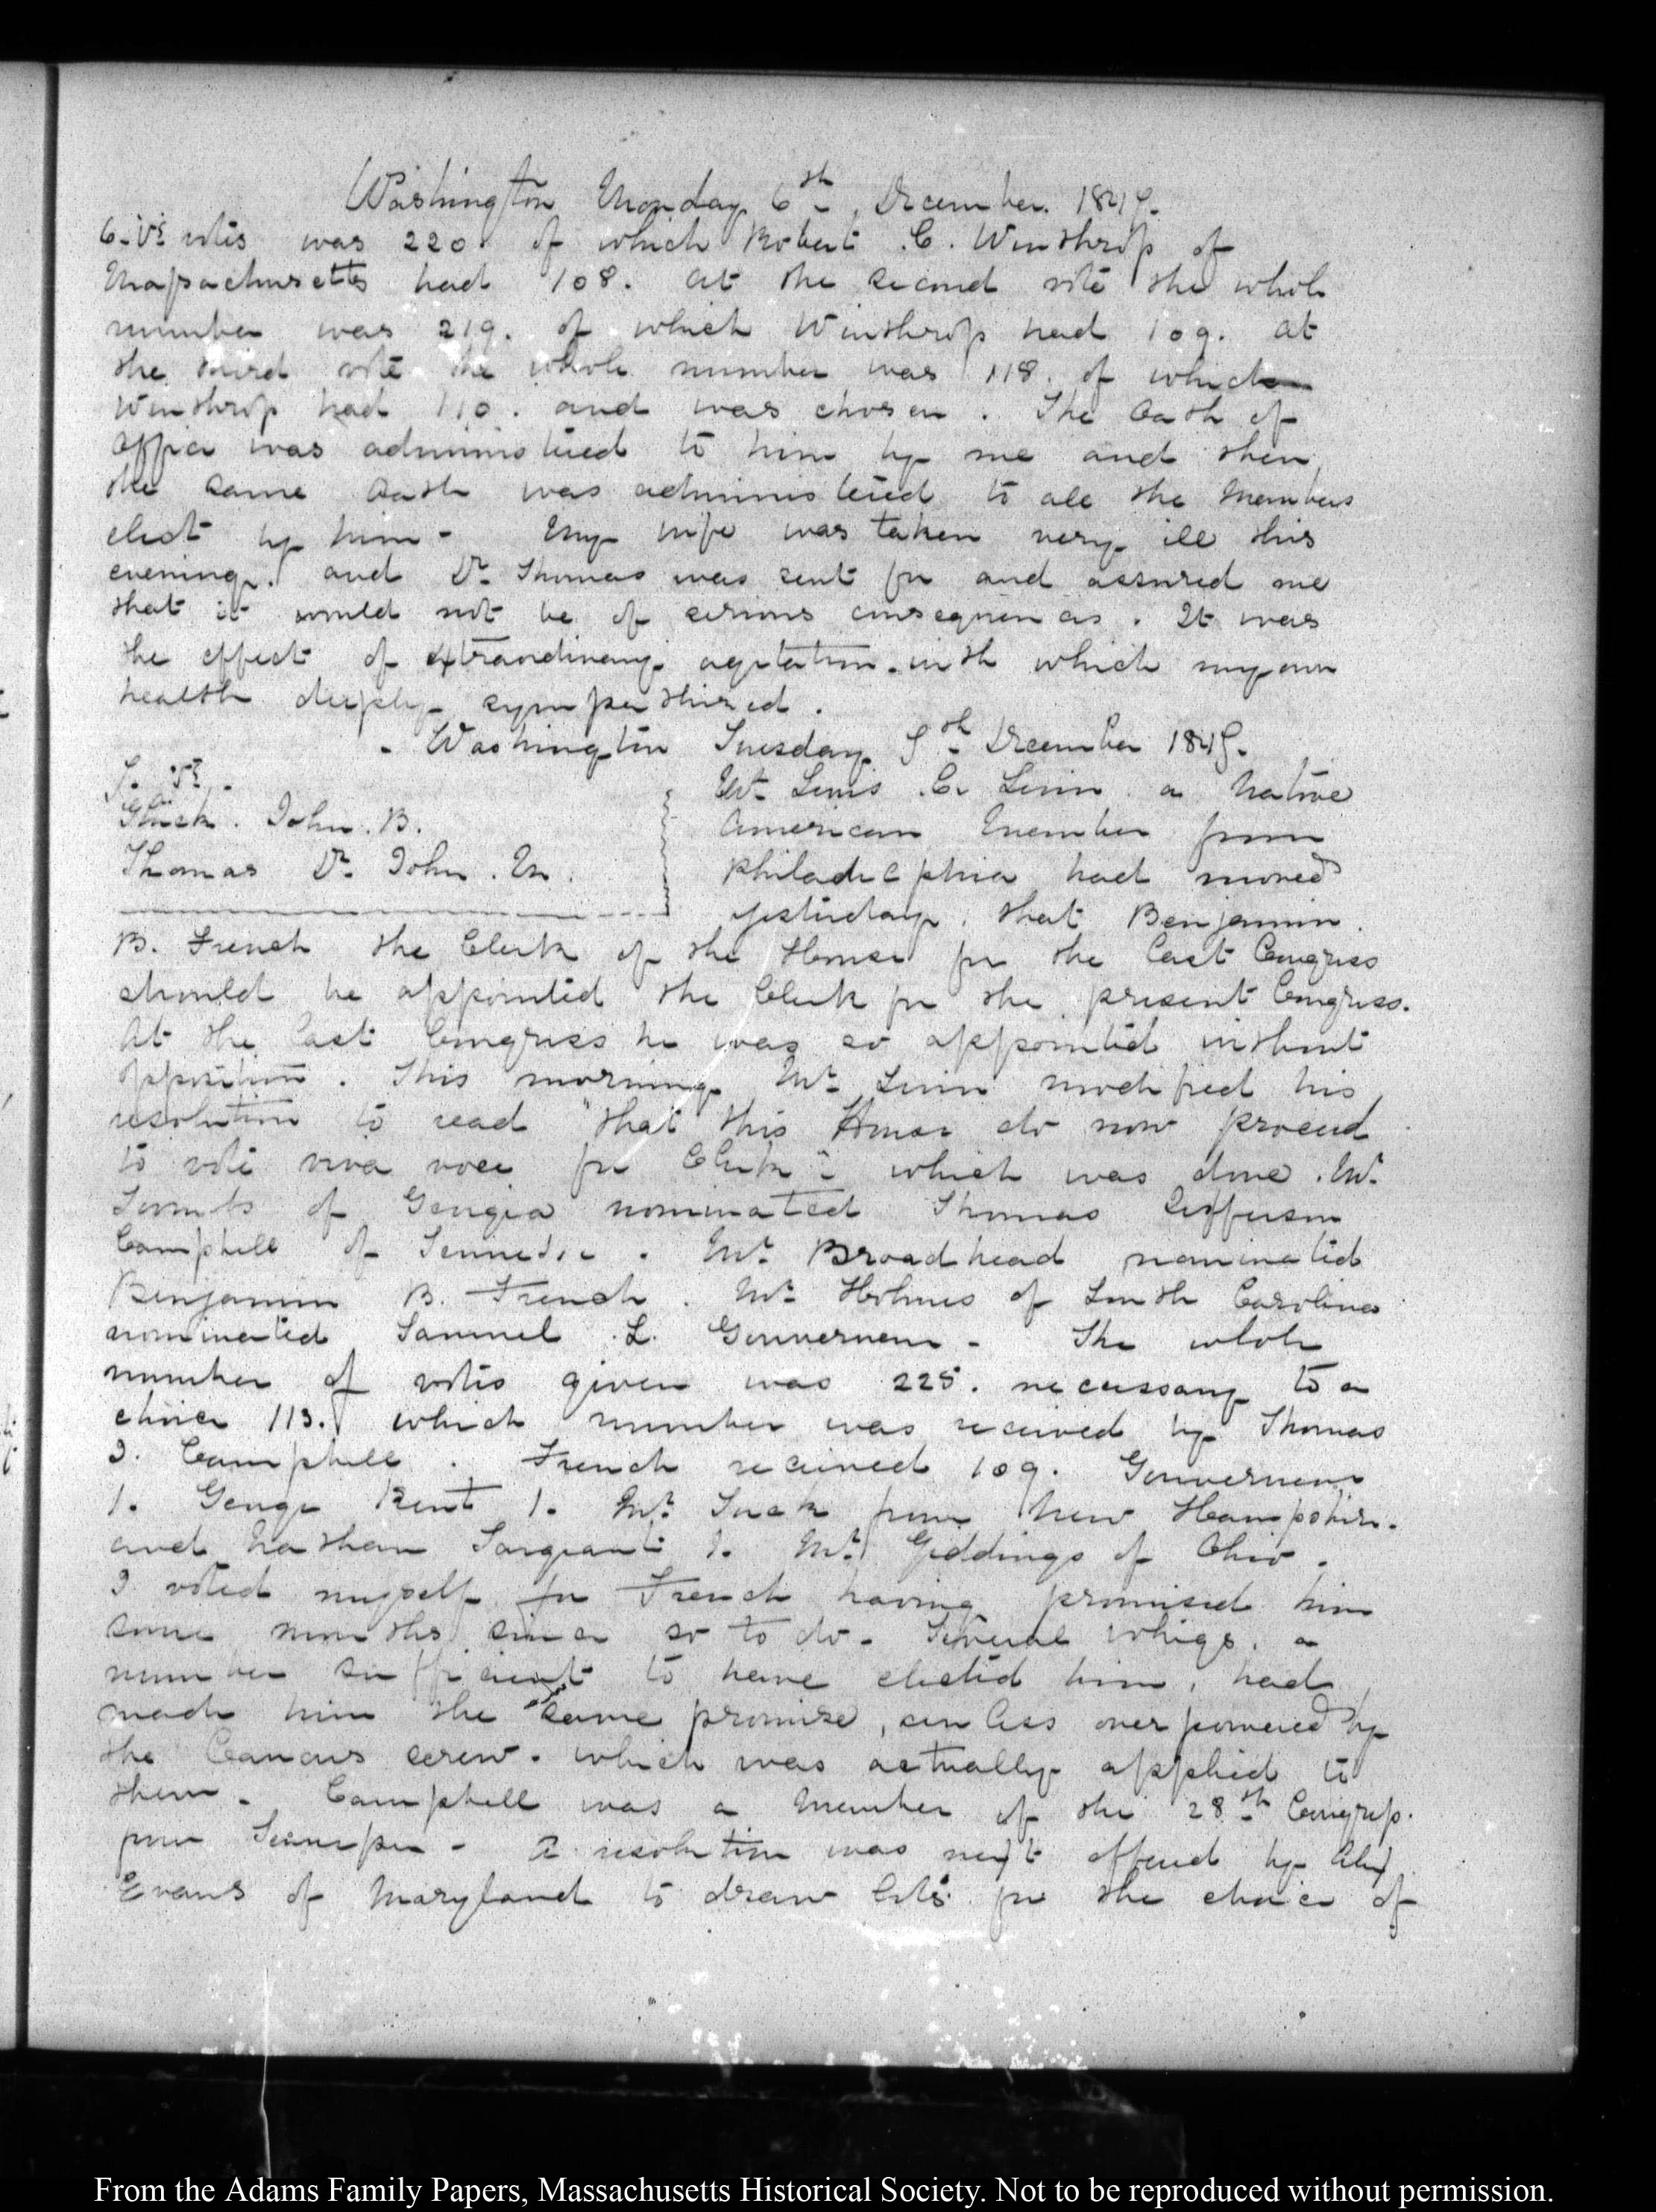 Washington Monday 6th. December. 1847.
6. VI. votes was 220. of which Robert C. Winthrop of
Massachusetts had 108. at the second vote the whole
number was 219. of which Winthrop had 109. at
the third vote the whole number was 118. of which
Winthrop had 110. and was chosen. The Oath of
Office was administered to him by me and then,
the same Oath was administered to all the Members
elect by him - My wife was taken very ill this
evening. and Dr. Thomas was sent for and assured me
that it would not be of serious consequences. It was
the effect of extraordinary agitation. with which my own
health deeply sympathized.
- Washington Tuesday 7th. December 1847.
7. VI.
John. B.
Thomas Dr. John. M.
Mr. Lewis C. Levin a Native
American Member from
Philadelphia had moved
yesterday, that Benjamin
B. French the Clerk of the House for the last Congress
should be appointed the Clerk for the present Congress.
At the last Congress he was so appointed without
opposition. This morning Mr. Levin modified his
resolution to read "that this House do now proceed
to vote viva voce for Clerk" which was done. Mr.
Toombs of Georgia nominated Thomas Jefferson
Campbell of Tennessee. Mr. Broadhead nominated
Benjamin B. French. Mr. Holmes of South Carolina
nominated Samuel L. Gouverneur - The whole
number of votes given was 225. necessary to a
choice 113. which number was received by Thomas
J. Campbell. French received 109. Gouverneur
1. George Kent 1. Mr. Tuck from New Hampshire.
and Nathan Sargeant 1. Mr. Giddings of Ohio.
I voted myself for French having promised him
some months since so to do. Several Whigs. a
number sufficient to have elected him, had
made him the same promise, unless overpowered by
the Caucus screw. which was actually applied to
them. Campbell was a Member of the 28th. Congress.
from Tennessee - A resolution was next offered by Alex
Evans of Maryland to draw lots for the choice of
From the Adams Family Papers, Massachusetts Historical Society. Not to be reproduced without permission.